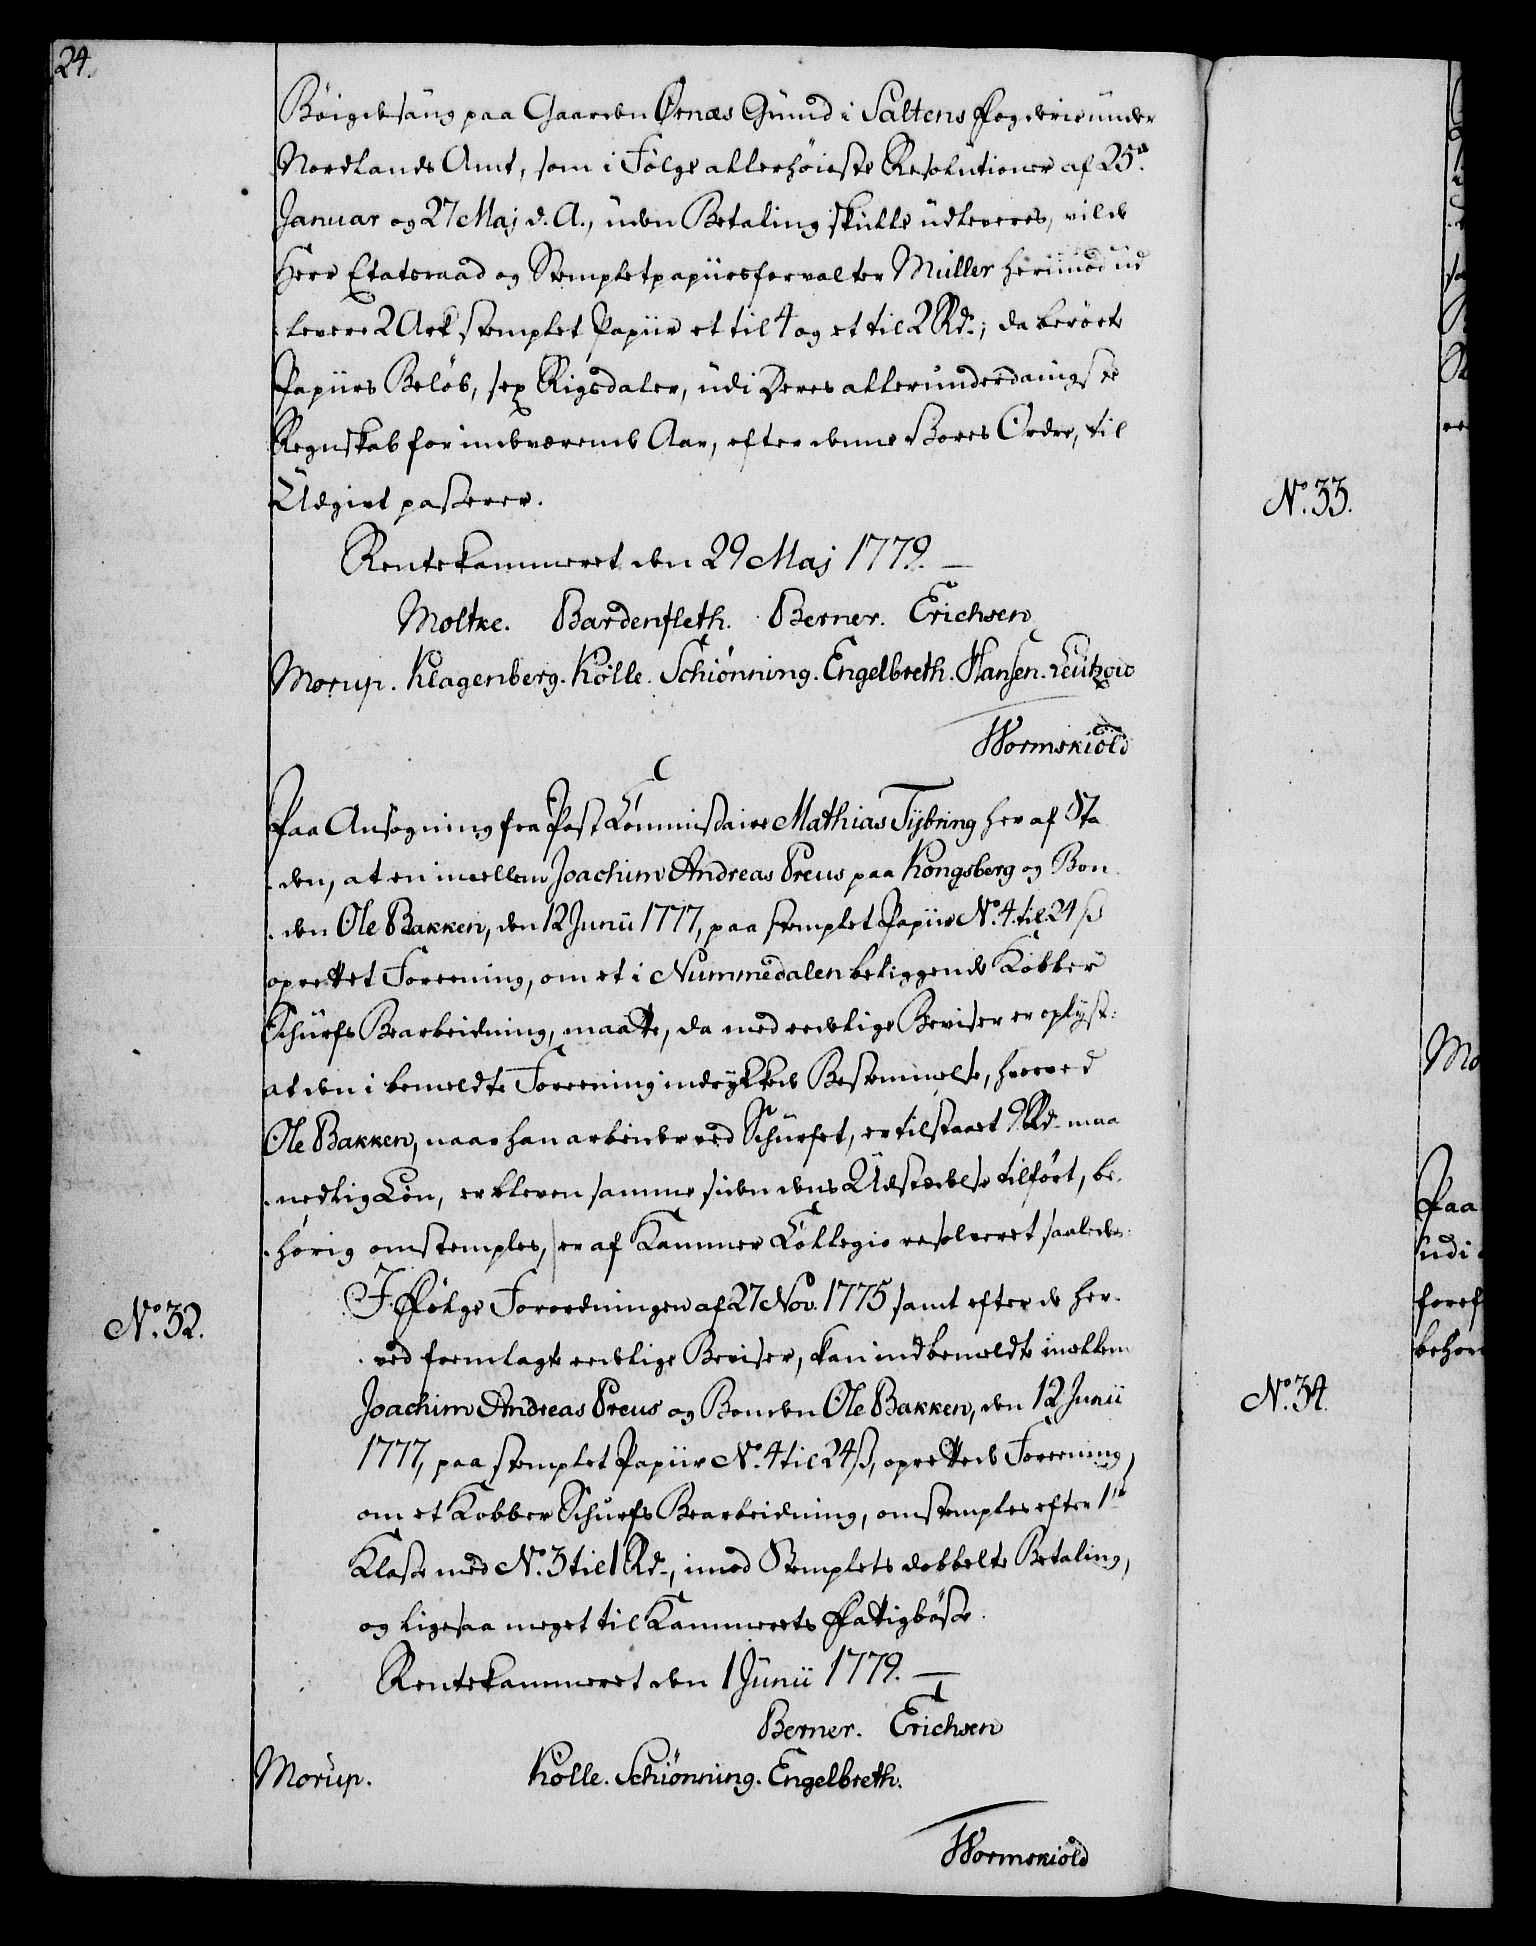 24.
Böigdsäug paa Gaarden Örnæs Gŭnd i Saltens Fogderie ŭnder
Nordlands Amt, som i Fölge allerhöieste Resolŭtioner af 25de
Januar og 27 Maj d. A., ŭden Betaling skŭlle ŭdleveres, vilde
Herr Etatsraad og Stempletpapiirsforvalter Müller herimod ŭd
levere 2 Ark stemplet Papiir et til 4 og et til 2 Rdr; da berörte
Papiirs Belöb, sex Rigsdaler, ŭdi Deres allerŭnderdanigste
Regnskab for indeværende Aar, efter denne Vores Ordre, til
Ŭdgivt passerer.
Rentekammeret den 29 Maj 1779.
Moltke. Bardenfleth. Berner. Erichsen
Morup. Klagenberg. Kölle. Schiönning. Engelbreth. Hansen. Leützov
Wormskiöld
Paa Ansögning fra Post Commissaire Mathias Tybring her af Sta
den, at en imellem Joachim Andreas Preus paa Kongsberg og Bon
den Ole Bakken, den 12 Junii 1777, paa stemplet Papiir No. 4 til 24 ß
oprettet Foreening, om et i Nummedalen beliggende Kobber
Schŭrfs Bearbeidning, maatte, da med eedelige Beviser er oplyst,
at den i bemeldte Foreening indrykkede Bestemmelse, hvorved
Ole Bakken, naar han arbeider ved Schŭrfet, er tilstaaet 9 Rdr maa
nedlig Lön, er bleven samme siden dens Ŭdstædelse tilfört, be
hörig omstemples, er af Kammer Collegio resolveret saaledes:
No. 32.
I Fölge Forordningen af 27 Nov. 1775 samt efter de her
ved fremlagte eedelige Beviser, kan indbemeldte imellem
Joachim Andreas Preus og Bonden Ole Bakken, den 12 Junii
1777, paa stemplet Papiir No. 4 til 24 ß, oprettede Foreening,
om et Kobber Schŭrfs Bearbeidning, omstemples efter 1ste
Klasse med No. 3 til 1 Rdr, imod Stemplets dobbelte Betaling,
og ligesaa meget til Kammerets Fattigbösse.
Rentekammeret den 1 Jŭnii 1779.
Berner. Erichsen
Morŭp. Kölle. Schiönning. Engelbreth.
Wormskiold
No. 33.
No. 34.
Mo
Paa
ŭdi
foref
behör